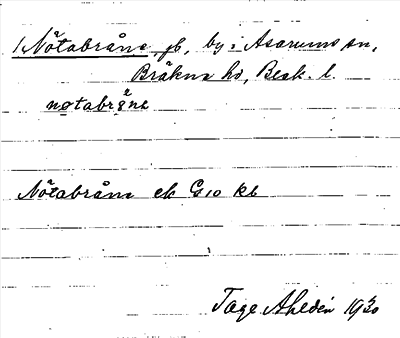 1 Nötabråne, gb, by i Asarums sn,
Bräkne hd, Blek. l.
nøtabrånɛ
Nötabråne ek G10 Kb
Tage Ahldén 1930